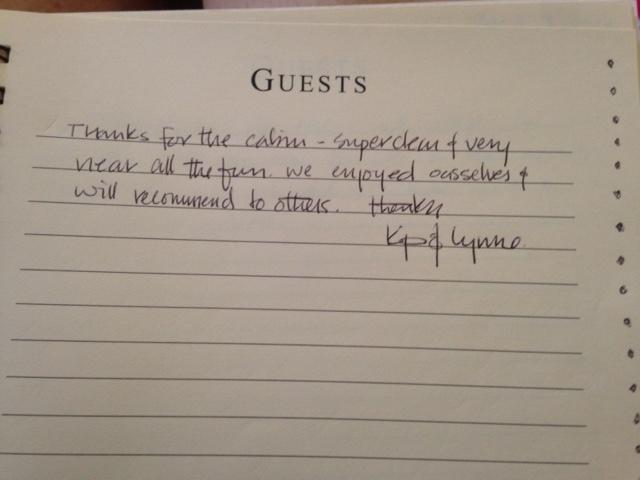 GUESTS
Thanks for the cabin - super clean & very
near all the fun. we enjoyed ourselves &
will recommend to others. thanks
Kip & Lynne